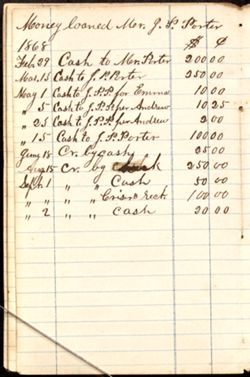 Money loaned Mr. J. P. Porter
1868 $ ¢
Feb. 29 Cash to Mr. Porter 200 00
Mar. 15 Cash to J. P. Porter 250 00
May 1 Cash to J. P. P. for Emma 10 00
" 5 Cash to J. P. P. per Andrew 10 25
" 25 Cash to J. P. P. per Andrew 2 00
" 15 Cash to J. P. Porter 100 20
18 Cr. by cash 25 00
Aug 15 Cr. by 250 00
Sept. 1 " " Cash 50 00
" " " " Rect. 100 00
" 2 " " Cash 20 00